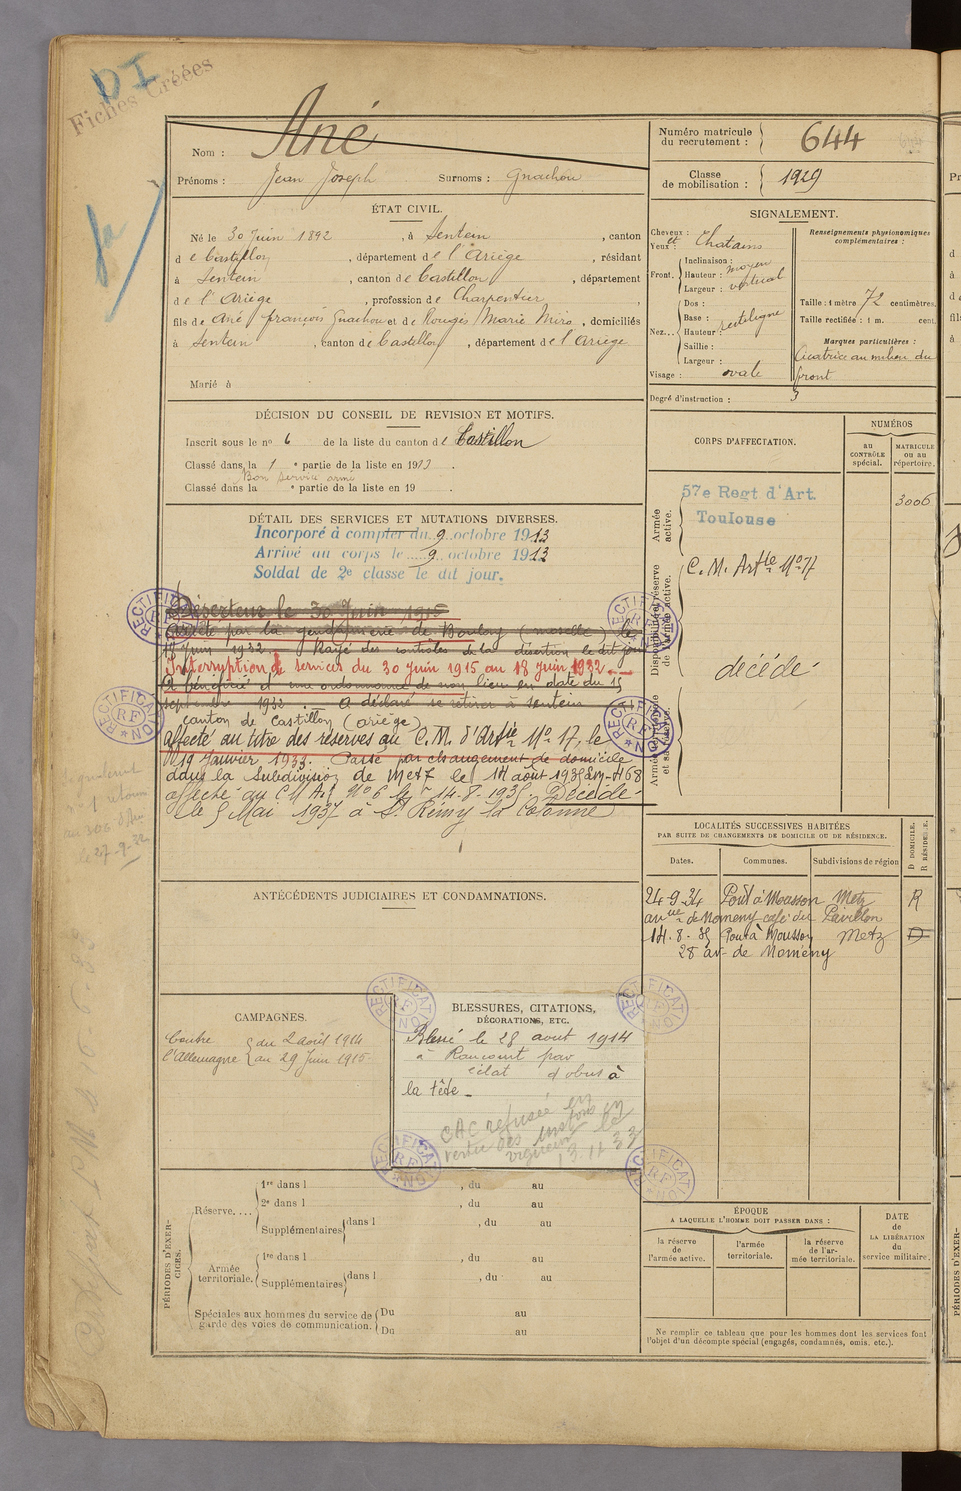 DI
Fiches Créées
Nom : Ané
Prénoms : Jean Joseph Surnoms : Gnachou
ÉTAT CIVIL.
Né le 30 Juin 1892, à Sentein, canton
d e Castillon, département de l'Ariège, résidant
à Sentein, canton de Castillon, département
de l'Ariège, profession de Charpentier,
fils de Ané françois Gnachou et de Rougis Marie Miro, domiciliés
à Sentein, canton de Castillon, département de l'Ariège
Marié à
DÉCISION DU CONSEIL DE REVISION ET MOTIFS.
Inscrit sous le nº 6 de la liste du canton de Castillon
Classé dans la 1e partie de la liste en 1913.
Bon service armé
Classé dans la e partie de la liste en 19 .
DÉTAIL DES SERVICES ET MUTATIONS DIVERSES.
Incorporé à compter du 9 octobre 1913
Arrivé au corps le 9 octobre 1913
Soldat de 2e classe le dit jour.
Déserteur le 30 Juin 1915
Arrêté par la gendarmerie de Boulay (moselle) le
18 Juin 1932. Rayé des contrôles de la désertion le dit jour
Interruption de services du 30 Juin 1915 au 18 Juin 1932
A bénéficié d'une ordonnance de non lieu en date du 15
septembre 1932. — A déclaré se retirer à Sentein
canton de Castillon (ariège)
Affecté au titre des réserves au C.M. d'Artie Nº 17, le
19 Janvier 1933. Passé par changement de domicile
dans la subdivision de Metz le 14 août 1935
affecté au C M A Nº 6 le 14-8-1935. Décédé
le 5 Mai 1937 à St Rémy la Calonne
ANTÉCÉDENTS JUDICIAIRES ET CONDAMNATIONS.
CAMPAGNES.
Contre l'Allemagne du 2 août 1914
au 29 Juin 1915
BLESSURES, CITATIONS,
DÉCORATIONS, ETC.
Blessé le 28 aout 1914
à Raucourt par
éclat d'obus à
la tête
CAC refusée en
vertu des instons en
vigueur le
13.11.37
RECTIFICATION RF
PÉRIODES D'EXERCICES.
Réserve....
1re dans l , du au
2e dans l , du au
Supplémentaires dans l , du au
Armée territoriale.
1re dans l , du au
Supplémentaires dans l , du au
Spéciales aux hommes du service de garde des voies de communication.
Du au
Du au
Numéro matricule du recrutement : 644
Classe de mobilisation : 1929
SIGNALEMENT.
Cheveux : et
Yeux : Chatains
Front. Inclinaison : moyen
Hauteur : vertical
Largeur :
Nez... Dos :
Base :
Hauteur : rectiligne
Saillie :
Largeur :
Visage : ovale
Renseignements physionomiques complémentaires :
Taille : 1 mètre 72 centimètres.
Taille rectifiée : 1 m. cent.
Marques particulières :
Cicatrice au milieu du
front
Degré d'instruction : 3
CORPS D'AFFECTATION.
NUMÉROS
au CONTRÔLE spécial.
MATRICULE ou au répertoire.
Armée active.
57e Regt d'Art.
Toulouse
3006
Disponibilité et réserve de l'armée active.
C. M. Artie Nº 17
décédé
LOCALITÉS SUCCESSIVES HABITÉES
PAR SUITE DE CHANGEMENTS DE DOMICILE OU DE RÉSIDENCE.
Dates. Communes. Subdivisions de région D DOMICILE. R RÉSIDENCE.
24-9-34 Pont à Mousson Metz R
avue de Nomeny café du Pavillon
14-8-35 Pont à Mousson Metz D
28 av. de Nomény
ÉPOQUE
A LAQUELLE L'HOMME DOIT PASSER DANS :
la réserve de l'armée active.
l'armée territoriale.
la réserve de l'armée territoriale.
DATE de LA LIBÉRATION du service militaire.
Ne remplir ce tableau que pour les hommes dont les services font
l'objet d'un décompte spécial (engagés, condamnés, omis, etc.).